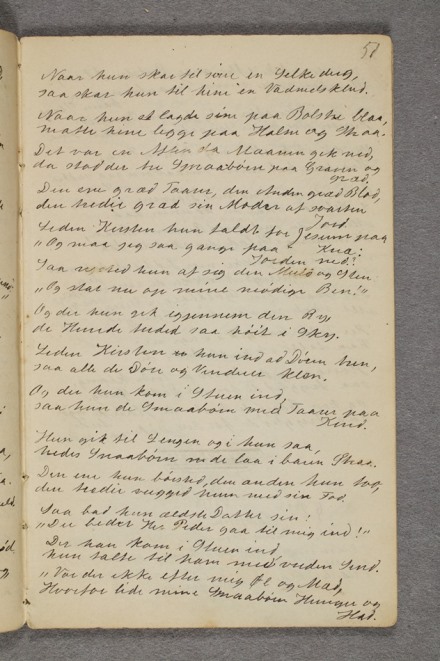 57
Naar hun skar til sine en Silke
saa skar hun til hine en Vadmelsklud.
Naar hun lagde sine paa Bolstre blaa,
matte hine ligge paa Halm og Straa.
Det var en Aften da Maanen gik ned,
da stod der tre Smaabørn paa Graven og
græd.
Den ene græd Taarer, den Anden græd Blod,
den tredie græd sin Moder af sorten
Jord.
Leden Kirsten hun faldt for Jesum paa
Knæ:
"Og maa jeg saa gange paa
Jorden ned!"
Saa hun af sig den Muld og Sten
"Og stat nu op mine mødige Ben!"
Og der hun gik igjennem den By,
de Hunde tuded saa høit i Sky.
Leden Kirsten hun ind ad Døren
saa alle de Døre og Vinduer
Og der hun kom i Stuen ind,
saa hun de Smaabørn med Taarer paa
Kind.
Hun gik til Sengen og i hun saa,
hendes Smaabørn de laa i baren Straa.
Den ene hun børsted, den anden hun tvo,
den tredie vugged hun med sin Fod.
Saa bad hun ældste Datter sin:
"Du beder Hr. Peder gaa til mig ind!"
Der han kom i Stuen ind,
hun talte til ham med vreden Sind.
"Var der ikke efter mig Øl og Mad,
Hvorfor lide mine Smaabørn Hunger og
Had.